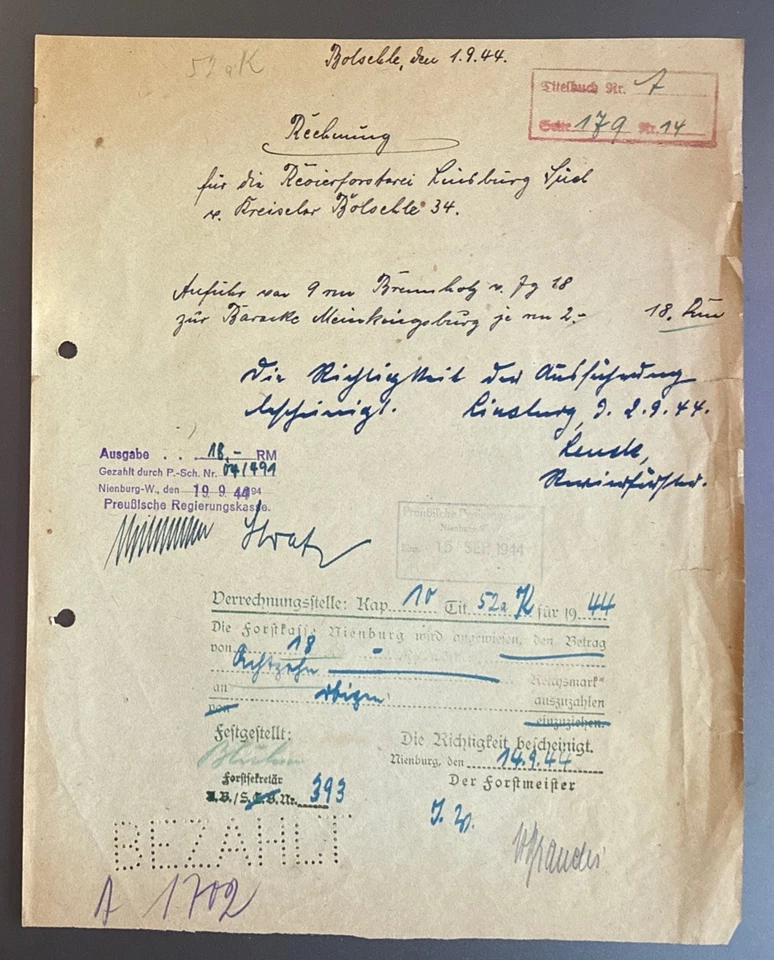 52 a K
Bolsehle, den 1.9.44.
Titelbuch Nr. A
Seite 179 Nr. 14
Rechnung
für die Revierförsterei Linsburg Süd
v. Bolsehle 34.
Anfuhr von 9 rm Brennholz v. Jg 18
zur Baracke je rm 2.- 18.
Die Richtigkeit der Ausführung
bescheinigt. Linsburg, d. 2.9.44.
Revierförster.
Ausgabe . . . 18,- RM
Gezahlt durch P.-Sch. Nr. 04/491
Nienburg-W., den 19 9. 44 194
Preußische Regierungskasse.
Preußische
Nienburg
15 SEP. 1944
Verrechnungsstelle: Kap. 10 Tit. 52a K für 19 44
Die Forstkasse Nienburg wird angewiesen, den Betrag
von 18 -
Achtzehn Reichsmark"
an obigen auszuzahlen
von einzuziehen.
Festgestellt: Die Richtigkeit bescheinigt.
Nienburg, den 14.9.44
Forstsekretär Der Forstmeister
Nr. 393
J. V.
BEZAHLT
A 1702